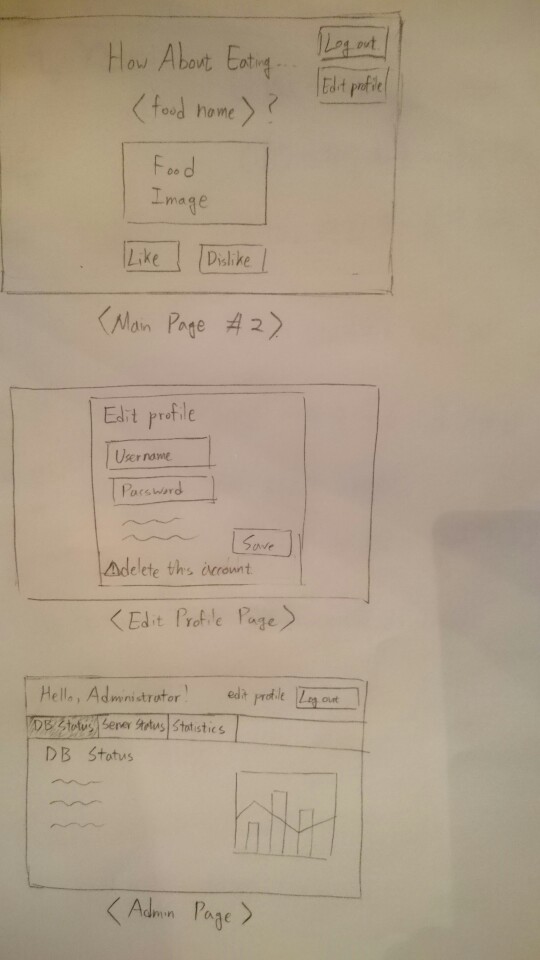 How About Eating...
Log out
Edit profile
<food name> ?
Food
Image
Like
Dislike
<Main Page #2>
Edit profile
Username
Password
Save
⚠delete this account
<Edit Profile Page>
Hello, Administrator!
edit profile
Log out
DB Status
Server Status
Statistics
DB Status
<Admin Page>